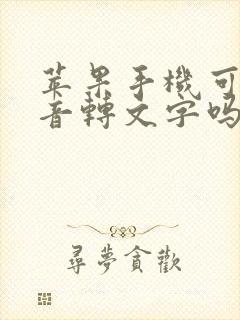 苹果手機可
音轉文字吗
尋夢貪歡